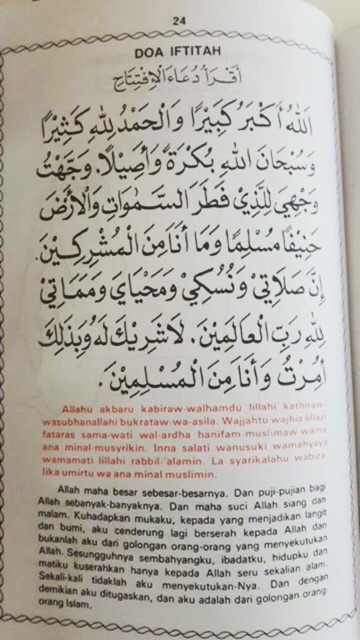 24
DOA IFTITAH
أَقْرَأْ دُعَاءَ الْاِفْتِتَاحِ
اَللهُ أَكْبَرُ كَبِيْرًا وَالْحَمْدُ لِلّٰهِ كَثِيْرًا
وَسُبْحَانَ اللهِ بُكْرَةً وَأَصِيْلًا. وَجَّهْتُ
وَجْهِيَ لِلَّذِيْ فَطَرَ السَّمٰوَاتِ وَالْأَرْضَ
حَنِيْفًا مُسْلِمًا وَمَا أَنَا مِنَ الْمُشْرِكِيْنَ.
إِنَّ صَلَاتِيْ وَنُسُكِيْ وَمَحْيَايَ وَمَمَاتِيْ
لِلّٰهِ رَبِّ الْعَالَمِيْنَ. لَا شَرِيْكَ لَهُ وَبِذٰلِكَ
أُمِرْتُ وَأَنَا مِنَ الْمُسْلِمِيْنَ.
Allahu akbaru kabiraw-walhamdu lillahi kathiraw
wasubhanallahi bukrataw-wa-asila. Wajjahtu wajhia lillazi
fataras sama-wati wal-ardha hanifam-muslimaw-wama
ana minal-musyrikin. Inna salati wanusuki wamahyaya
wamamati lillahi rabbil-'alamin. La syarikalahu wabiza
lika umirtu wa ana minal muslimin.
Allah maha besar sebesar-besarnya. Dan puji-pujian bagi
Allah sebanyak-banyaknya. Dan maha suci Allah siang dan
malam. Kuhadapkan mukaku, kepada yang menjadikan langit
dan bumi, aku cenderung lagi berserah kepada Allah dan
bukanlah aku dari golongan orang-orang yang menyekutukan
Allah. Sesungguhnya sembahyangku, ibadatku, hidupku dan
matiku kuserahkan hanya kepada Allah seru sekalian alam.
Sekali-kali tidaklah aku menyekutukan-Nya. Dan dengan
demikian aku ditugaskan, dan aku adalah dari golongan orang-
orang Islam.